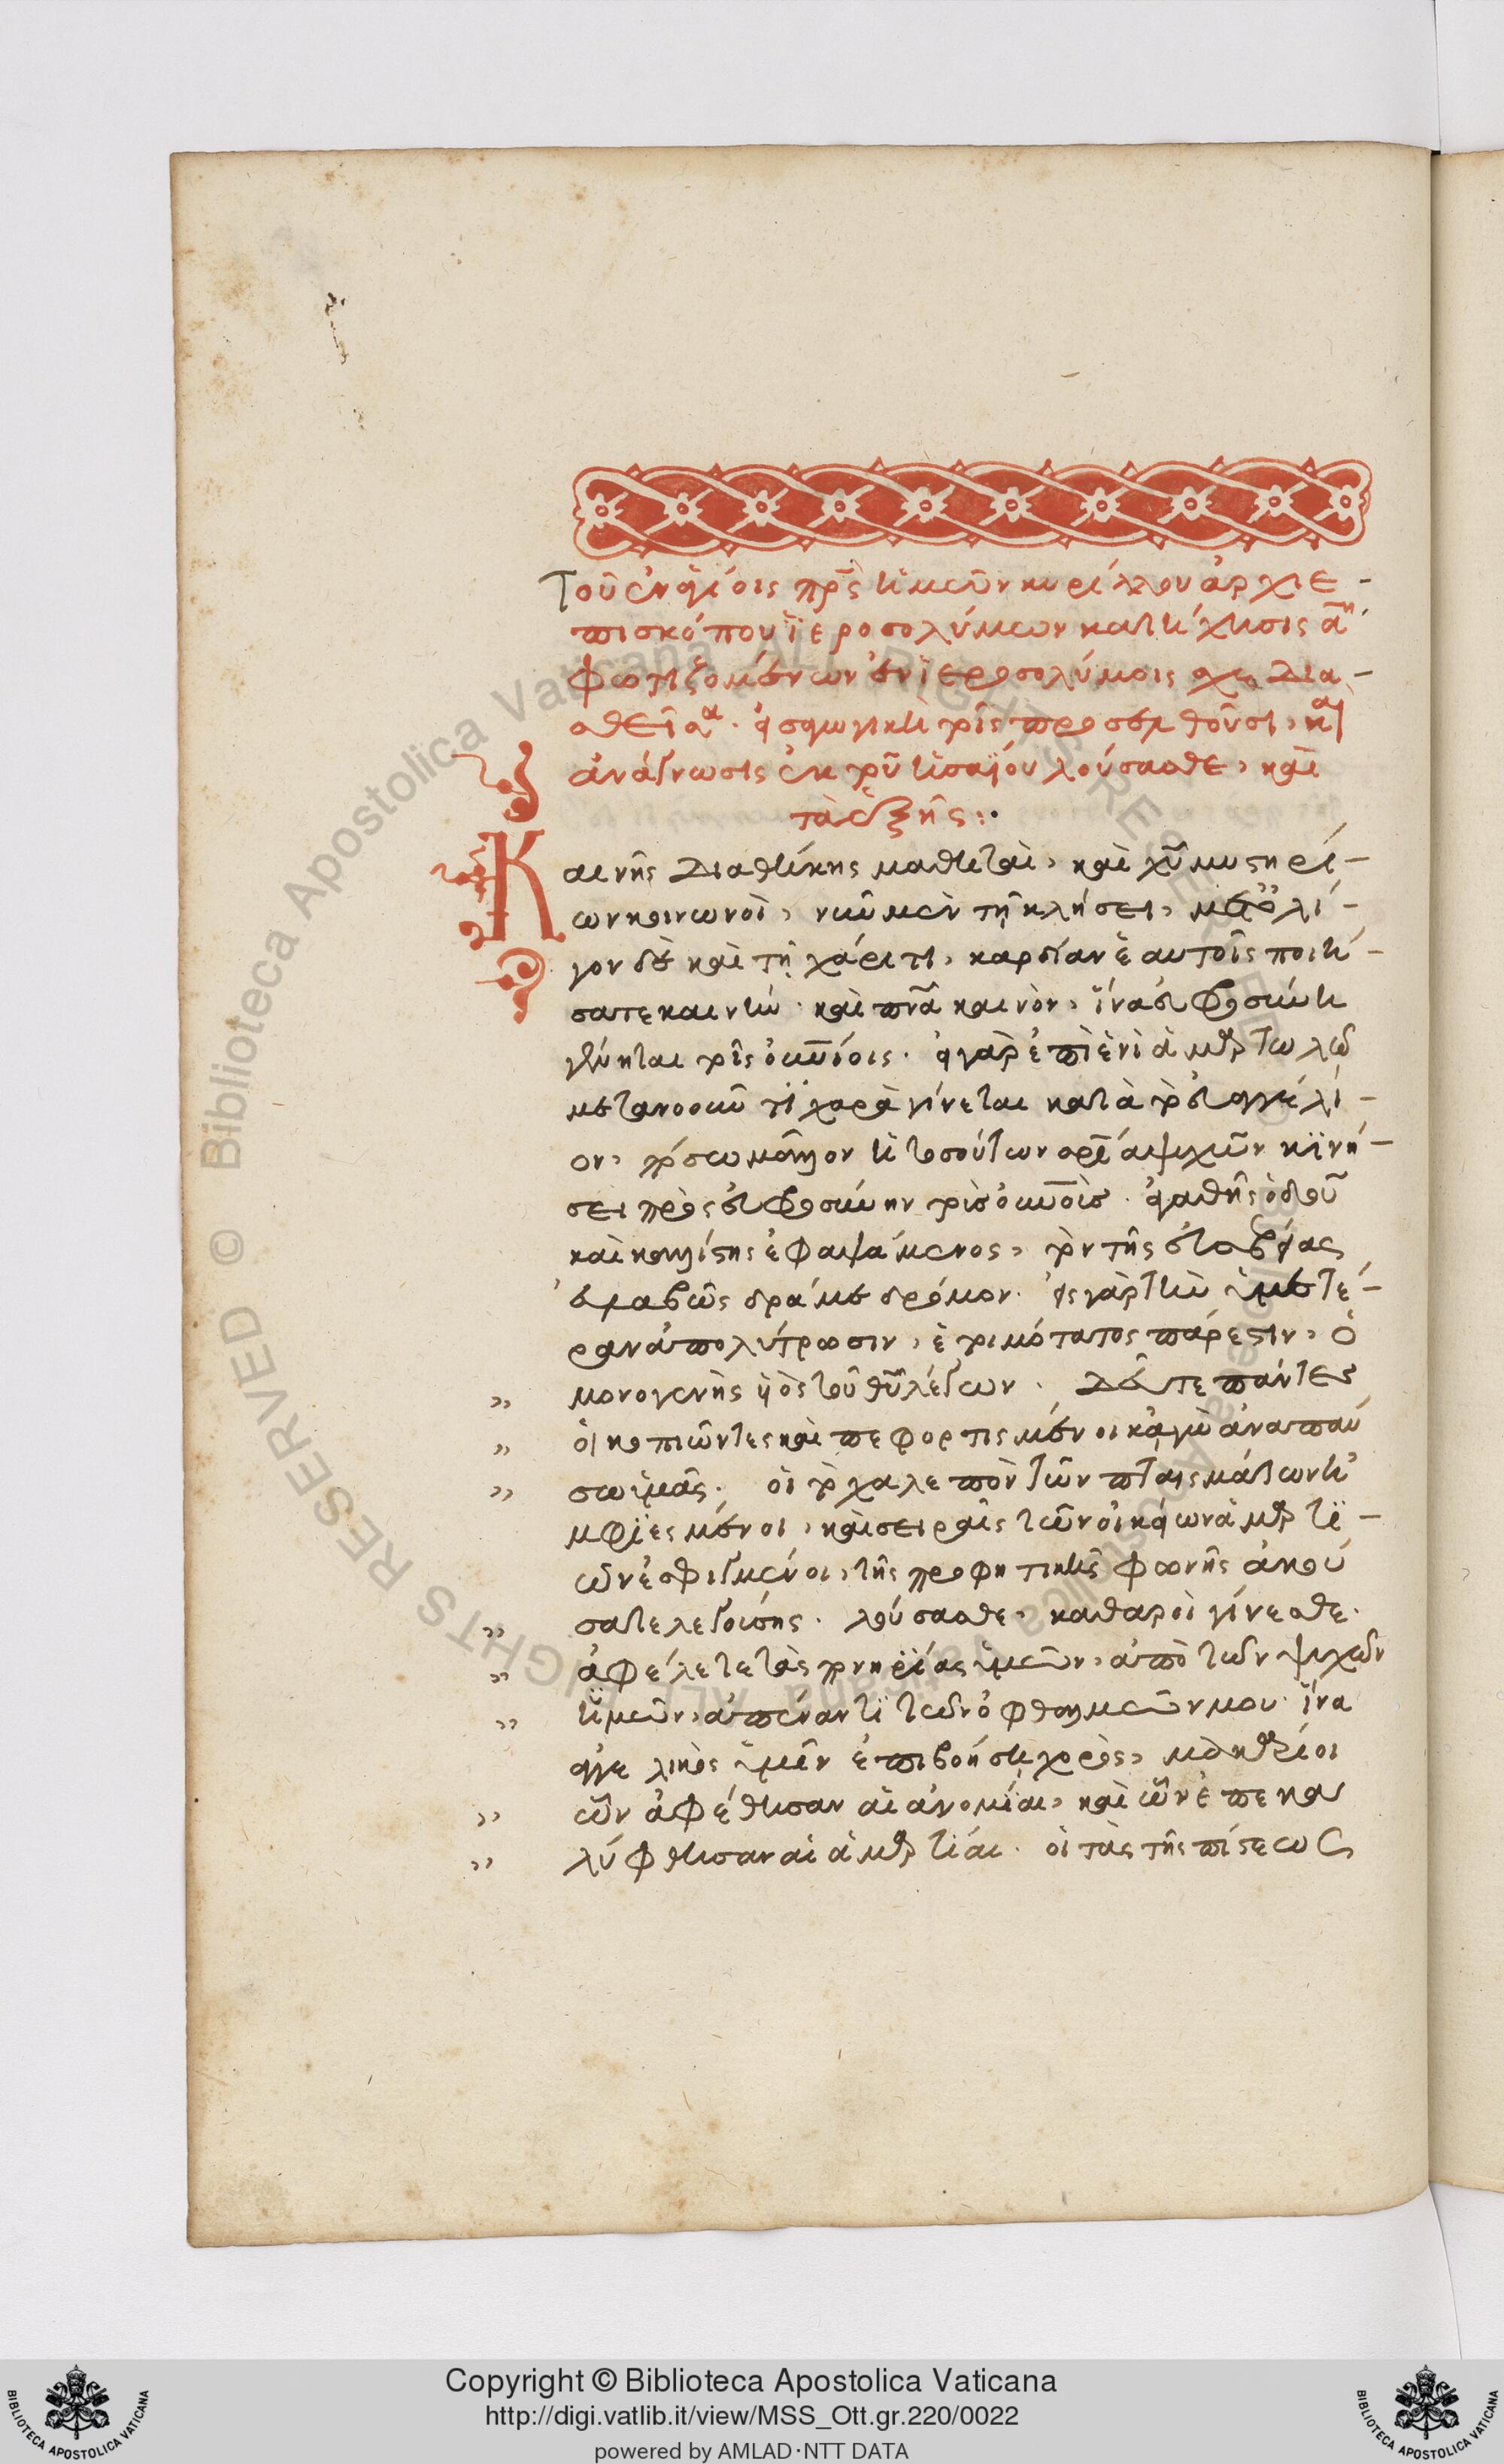 Τοῦ ἐν ἁγίοις πρς ἡμῶν κυρίλλου ἀρχιε-
πισκόπου ἱεροσολύμων κατήχησις αη
φωτιζομένων ἐν ἱεροσολύμοις σχεδια-
σθεῖσα. εἰσαγωγικὴ τοῖς προσελθοῦσι, καὶ
ἀνάγνωσις ἐκ τοῦ ἡσαΐου λούσασθε, καὶ
τὰ ἑξῆς:·
Καινῆς διαθήκης μαθηταὶ, καὶ χῦ μυστηρί-
ων κοινωνοὶ, νῦν μὲν τῇ κλήσει, μετ' ὀλί-
γον δὲ καὶ τῇ χάριτι, καρδίαν ἑαυτοῖς ποιή-
σατε καινὴν καὶ πνα καινὸν, ἵνα εὐφροσύνη
γένηται τοῖς οὐνίοις. εἰ γὰρ ἐπὶ ἑνὶ ἁμρτωλῶ
μετανοοῦντι χαρὰ γίνεται κατὰ τὸ εὐαγγέλι-
ον, πόσω μᾶλλον ἡ τοσούτων σρία ψυχῶν κινή-
σει πρὸς εὐφροσύνην τοὺς οὐνοὺς. εἰ ἀθῆς ὁδοῦ
καὶ καλλίστης ἐφαψάμενος, τὸν τῆς εὐσεβείας
εὐλαβῶς δράμε δρόμον. εἰς γὰρ τὴν ἡμετέ-
ραν ἀπολύτρωσιν, ἑτοιμότατος πάρεστιν, ὁ
,, μονογενὴς υἱὸς τοῦ θῦ λέγων. Δεῦτε πάντες
,, οἱ κοπιῶντες καὶ πεφορτισμένοι κἀγὼ ἀναπαύ
,, σω ὑμᾶς. οἱ τὸ χαλεπὸν τῶν πταισμάτων ἠ
μφιεσμένοι, καὶ σειραῖς τῶν οἰκείων ἁμρτι-
ῶν ἐσφιγμένοι, τῆς προφητικῆς φωνῆς ἀκού
,, σατε λεγούσης. λούσασθε, καθαροὶ γίνεσθε.
,, ἀφέλετε τὰς πονηρίας ὑμῶν, ἀπὸ τῶν ψυχῶν
,, ὑμῶν, ἀπέναντι τῶν ὀφθαλμῶν μου. ἵνα
ἀγγελικὸς ὑμῖν ἐπιβοήσῃ χορὸς, μακάριοι
,, ὧν ἀφέθησαν αἱ ἀνομίαι, καὶ ὧν ἐπεκα
,, λύφθησαν αἱ ἁμρτίαι. οἱ τὰς τῆς πίστεως
Copyright © Biblioteca Apostolica Vaticana
http://digi.vatlib.it/view/MSS_Ott.gr.220/0022
powered by AMLAD·NTT DATA
BIBLIOTECA APOSTOLICA VATICANA
BIBLIOTECA APOSTOLICA VATICANA